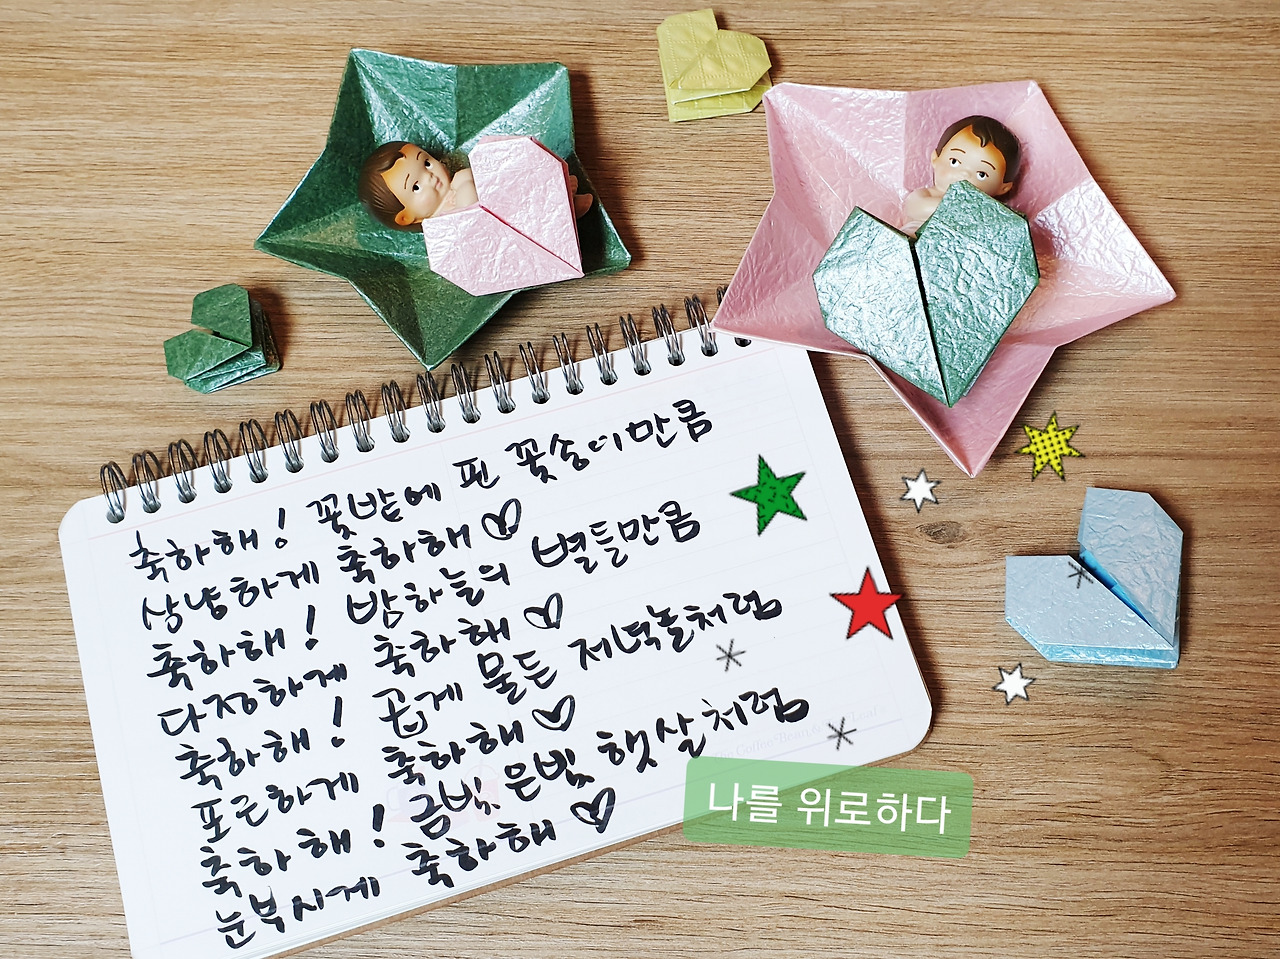 축하해! 꽃밭에 핀 꽃송이만큼
상냥하게 축하해
축하해! 밤하늘의 별들만큼
다정하게 축하해
축하해! 곱게 물든 저녁놀처럼
포근하게 축하해
축하해! 금빛 은빛 햇살처럼
눈부시게 축하해
The Coffee Bean & Tea Leaf
나를 위로하다